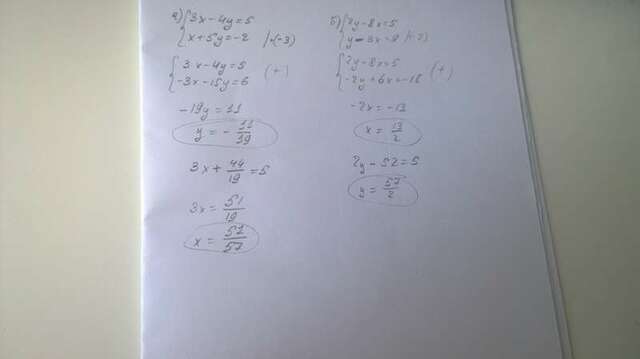 а) { 3x - 4y = 5
x + 5y = -2 | ·(-3)
{ 3x - 4y = 5
-3x - 15y = 6 (+)
-19y = 11
y = - 11/19
3x + 44/19 = 5
3x = 51/19
x = 51/57
б) { 2y - 8x = 5
y - 3x = 9 | (-2)
{ 2y - 8x = 5
-2y + 6x = -18 (+)
-2x = -13
x = 13/2
2y - 52 = 5
y = 57/2